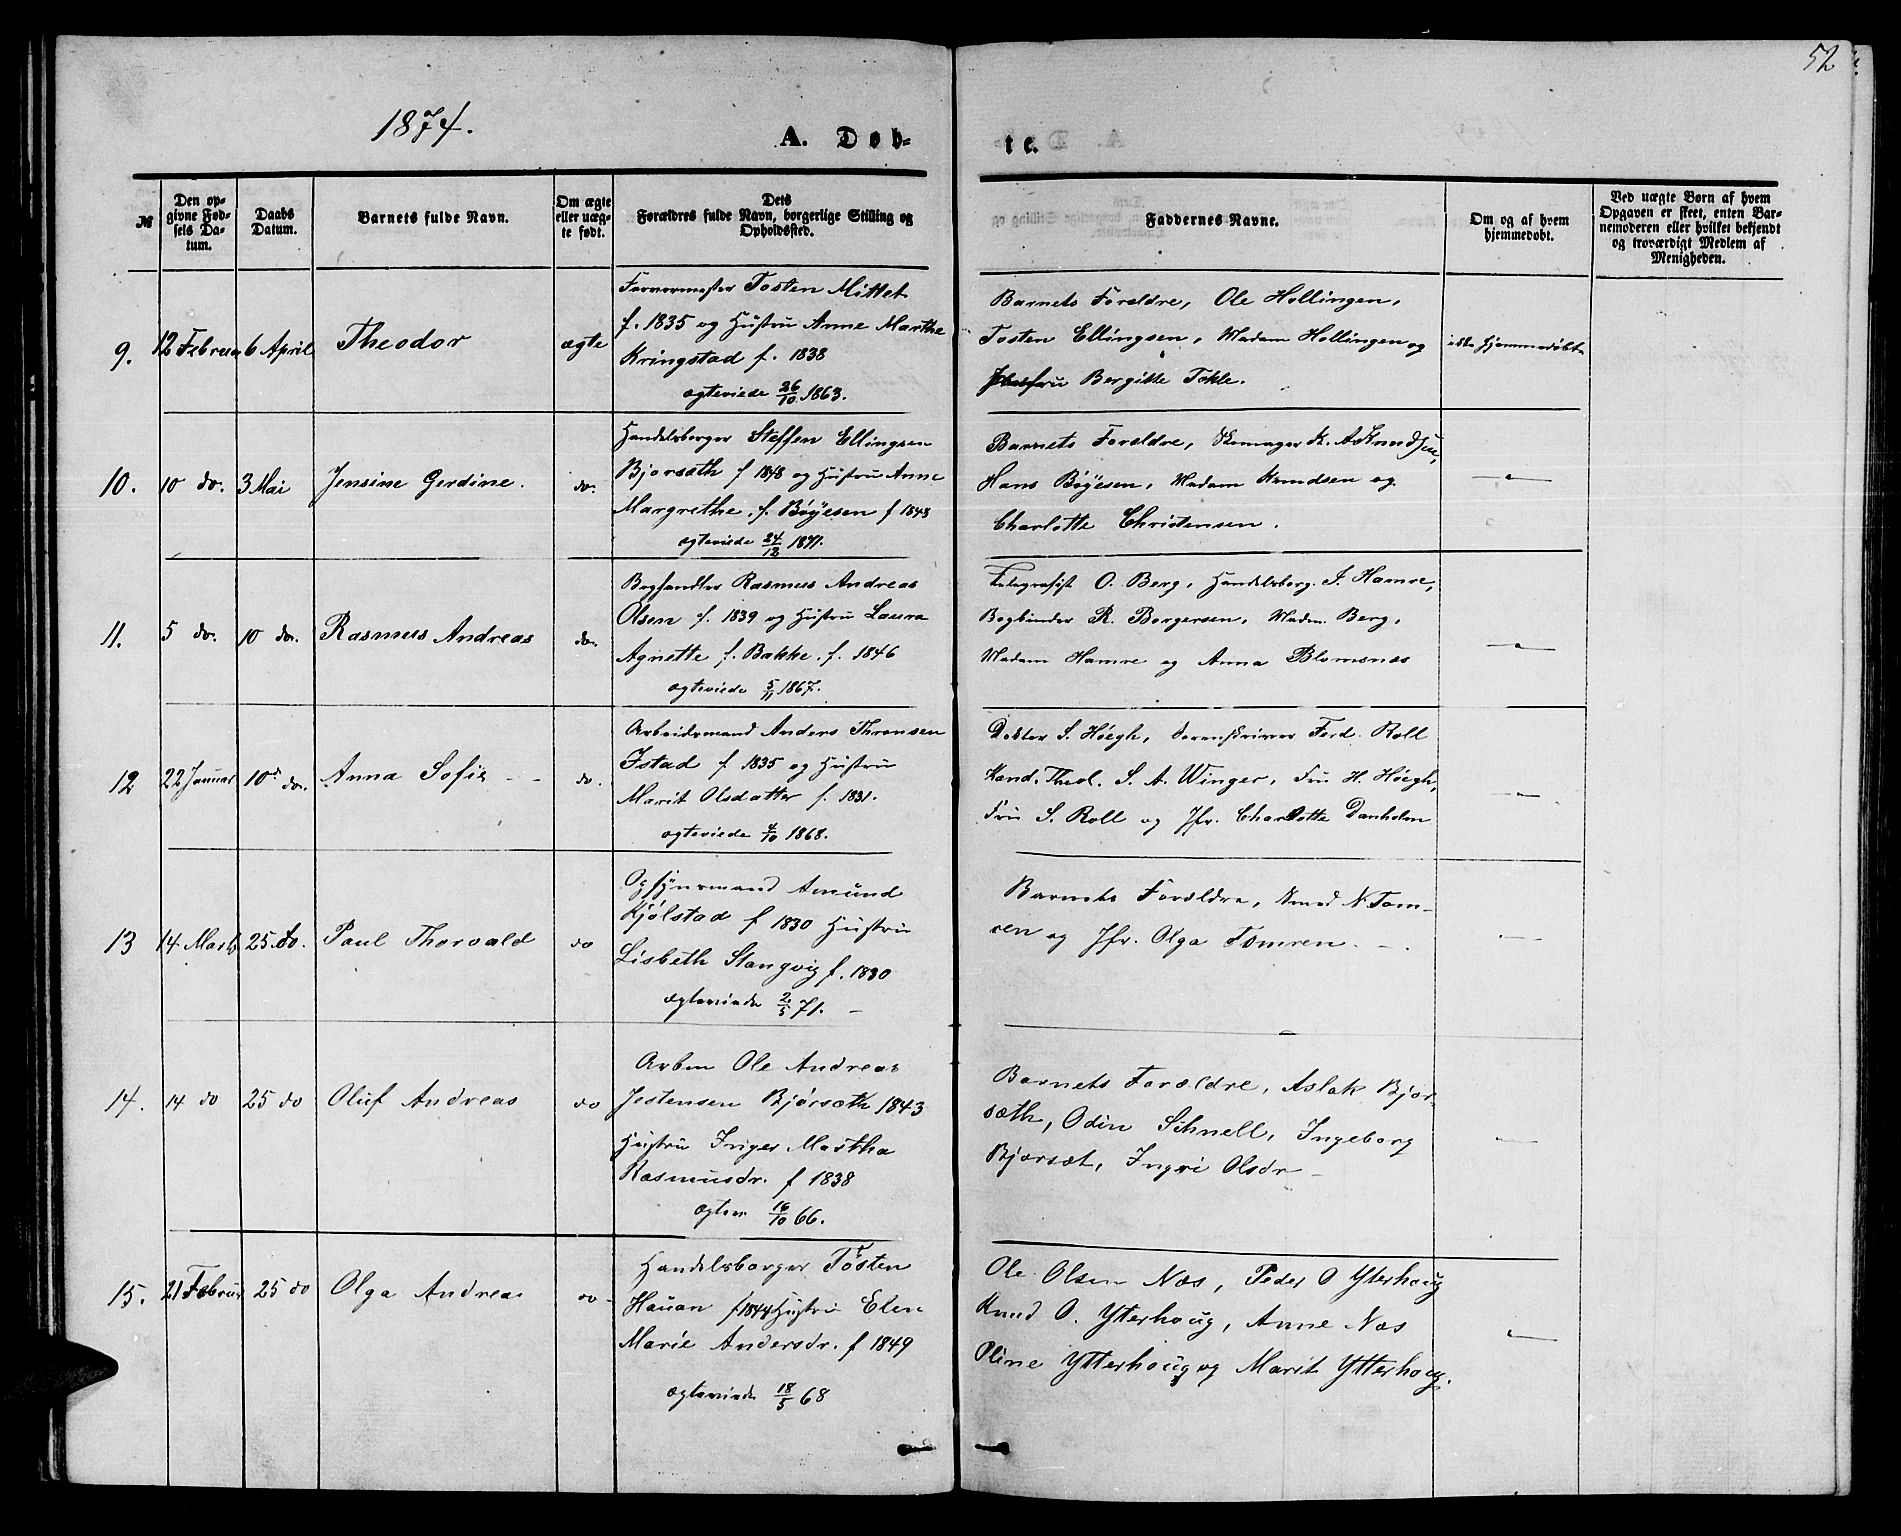 52
1874.
A. Døb-
te.
№
Den op-
givne Fød-
sels Da-
tum.
Daabs
Datum.
Barnets fulde Navn.
Om ægte
eller uæg-
te født.
Dets
Forældres fulde Navn, borgerlige Stilling og
Opholdssted.
Faddernes Navne.
Om og af hvem
hjemmedøbt.
Ved uægte Børn af hvem
Opgaven er skeet, enten Bar-
nemoderen eller hvilket bekjendt
og troværdigt Medlem af
Menigheden.
9.
12 Februar
6 April
Theodor
ægte
Farvermester Tosten Mittet
f. 1835 og Hustru Anne Marthe
Kringstad f. 1838
ægteviede 26/10 1863.
Barnets Forældre, Ole Hollingen,
Tosten Ellingsen, Madam Hollingen og
Bergitte Tokle.
ikke hjemmedøbt
10.
10 do.
3 Mai
Jensine Gerdine.
do.
Handelsborger Steffen Ellingsen
Bjorsæth f 1848 og Hustru Anne
Margrethe f. Böÿesen f 1848
ægteviede 24/12 1871.
Barnets Forældre, Skomager K. A. Knudsen,
Hans Böÿesen, Madam Knudsen og
Charlotte Christensen.
11.
5 do.
10 do.
Rasmus Andreas
do.
Boghandler Rasmus Andreas
Olsen f. 1839 og Hustru Laura
Agnette f. Bakke. f. 1846
ægteviede 5/11 1867.
Telegrafist O. Berg, Handelsborg. J. Hamre,
Bogbinder R. Borgersen, Madm. Berg,
Madam Hamre og Anna Blomsnæs
12
22 Januar
10 do.
Anna Sofie
do.
Arbeidsmand Anders Thronsen
Istad f. 1835 og Hustru
Marit Olsdatter f. 1831.
ægteviede 4/10 1868.
Doktor S. Höegh, Sorenskriver Ferd. Roll
Kand. Theol. S. A. Winger, Fru H. Höegh,
Fru S. Roll og Jfr. Charlotte Danholm
13
14 Marts
25 do.
Paul Thorvald
do
Opsynsmand Amund
Kjölstad f 1830 Hustru
Lisbeth Stangvig f. 1830
ægteviede 2/5 71.
Barnets Forældre, Smed N. Tom-
ren og Jfr. Olga Tomren.
14.
14 do
25 do
Oluf Andreas
do
Arbm Ole Andreas
Jestensen Björsæth 1843
Hustru Inger Martha
Rasmusdr. f 1838
ægtev 16/10 66.
Barnets Forældre, Aslak Bjor-
sæth, Odin Schnell, Ingeborg
Bjorsæt, Ingri Olsdr
15.
21 Februar
25 do
Olga Andrea
do
Handelsborger Tösten
Hauan f 1844 Hustru Elen
Marie Andersdr. f 1849
ægteviede 18/5 68
Ole Olsen Næs, Peder O Ytterhoug
Knud O. Ytterhoug, Anne Næs
Oline Ytterhoug og Marit Ytterhoug.